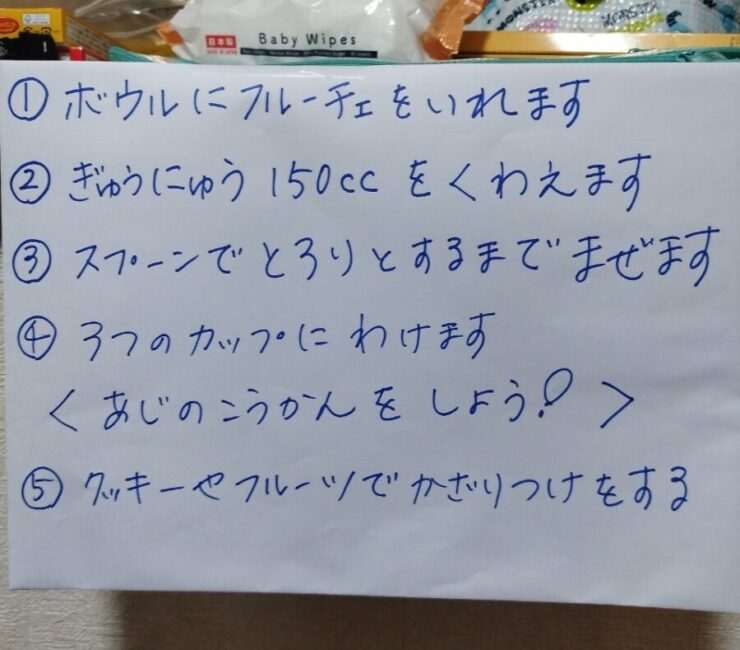 日本製
MADE IN JAPAN
Baby Wipes
MONSTER
MONSTER
① ボウルにフルーチェをいれます
② ぎゅうにゅう 150cc をくわえます
③ スプーンでとろりとするまでまぜます
④ 3つのカップに わけます
< あじのこうかんを しよう! >
⑤ クッキーやフルーツでかざりつけをする